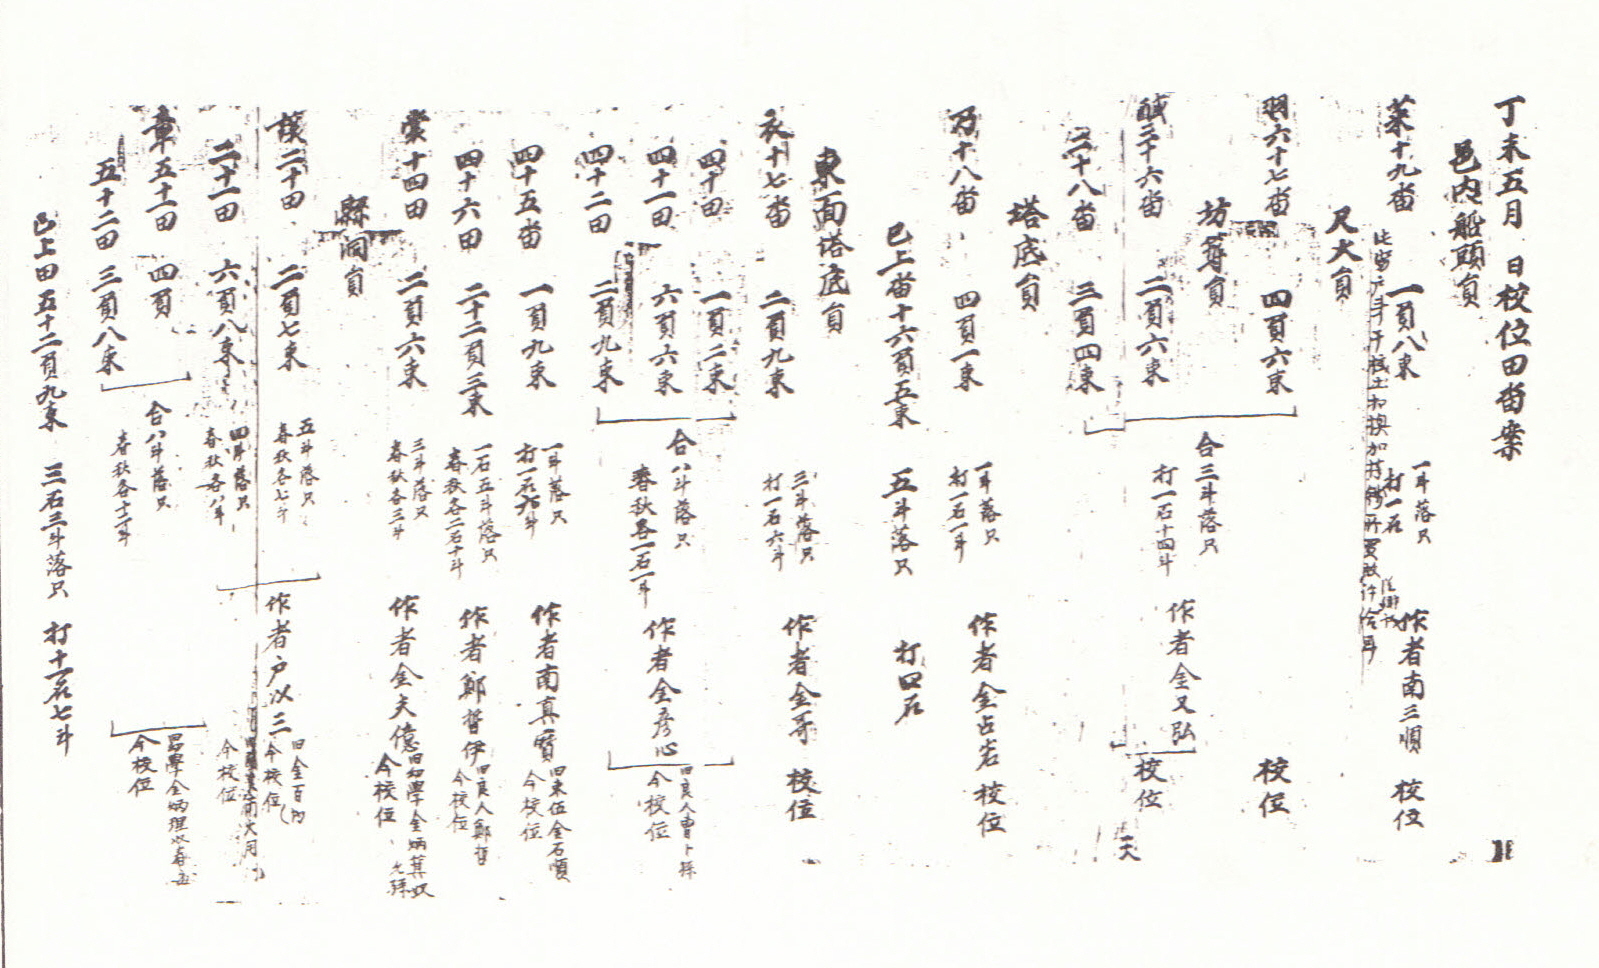 丁未五月 日校位田畓案
邑内船頭員
菜十九畓 一負八束 一斗落只 打一石 作者南三順 校位
尺大員
羽六十七畓 四負六束 校位
坊筭員
馘三十六畓 二負六束 合三斗落只 打一石十四斗 作者金又弘 校位
三十八畓 三負四束
塔底員
乃十八畓 四負一束 一斗落只 打一石一斗 作者金占岩 校位
已上畓十六負五束 五斗落只 打四石
東面塔底員
衣十七畓 二負九束 三斗落只 打一石六斗 作者金哥 校位
四十田 一負二束
四十一田 六負六束 合八斗落只 春秋各一石一斗 作者金彦心 旧良人曹卜孫 今校位
四十二田 二負九束
四十五畓 一負九束 一斗落只 打一石六斗 作者南真宝 旧束伍金石順 今校位
四十六田 二十二負三束 一石五斗落只 春秋各二石十斗 作者鄭哲伊 旧良人鄭哲 今校位
裳十四田 二負六束 三斗落只 春秋各三斗 作者金夫億 旧幼學金炳其奴 今校位
縣洞員
談二十田 二負七束 五斗落只 春秋各七斗 作者戶以三 旧金百 今校位
二十一田 六負八束 四斗落只 春秋各八斗 今校位
章五十一田 四負 合八斗落只 春秋各十二斗 學金炳理奴春 今校位
五十二田 三負八束
已上田五十二負九束 三石三斗落只 打十一石七斗